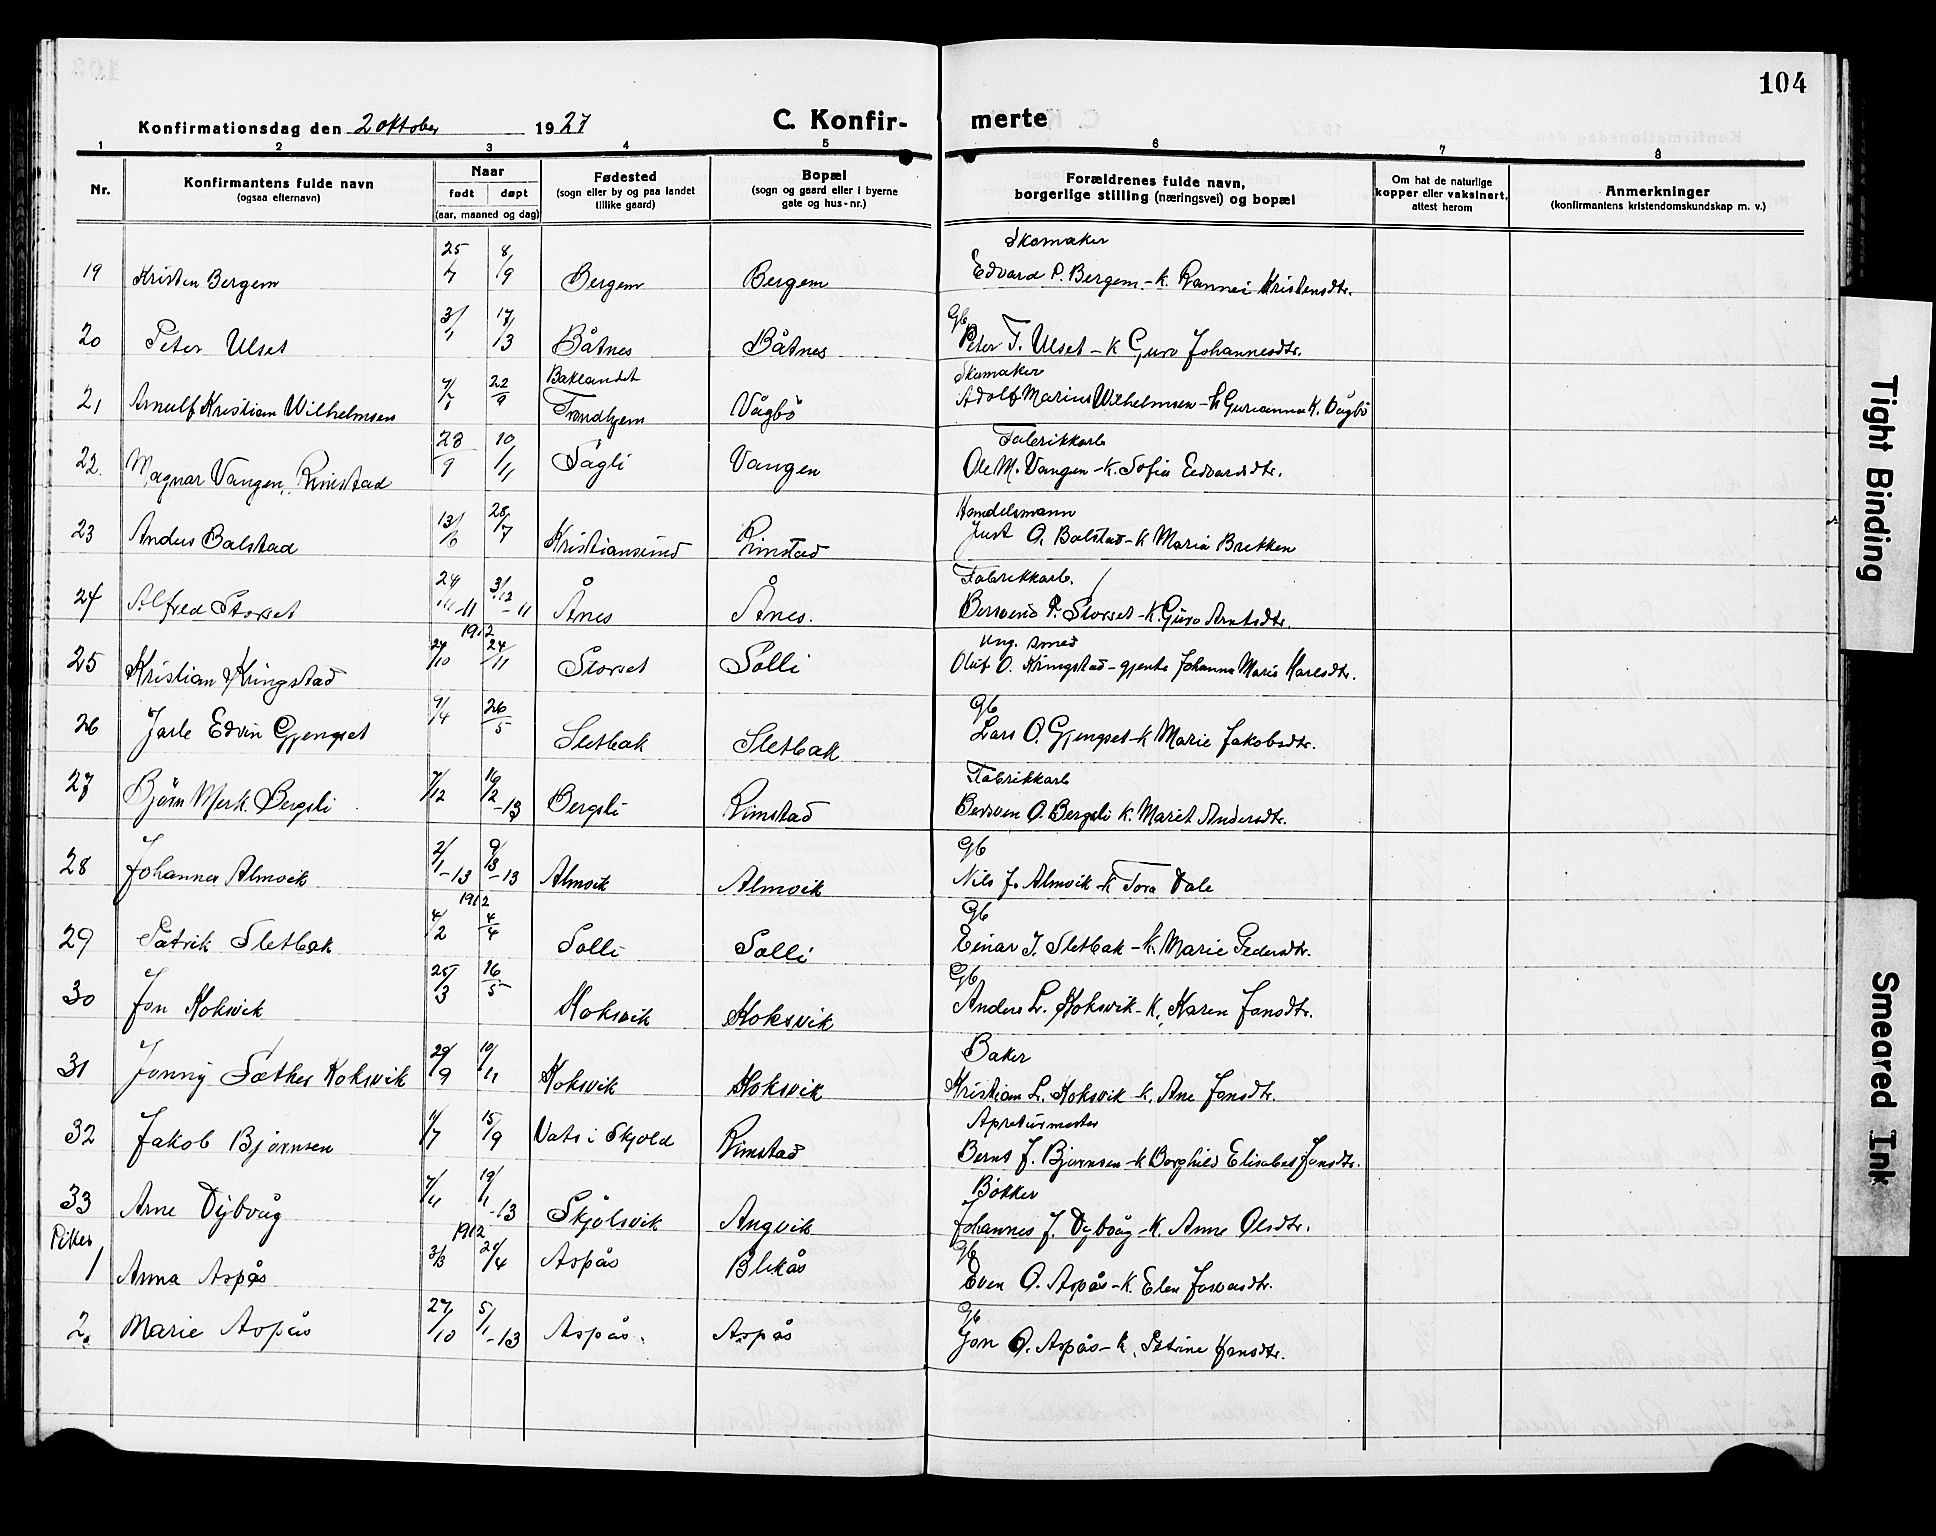 104
Konfirmationsdag den 2 oktober 1927 C. Konfir- merte
1 2 3 4 5 6 7 8
Nr. Konfirmantens fulde navn (ogsaa efternavn) Naar født døpt (aar, maaned og dag) Fødested (sogn eller by og paa landet tillike gaard) Bopæl (sogn og gaard eller i byerne gate og hus-nr.) Forældrenes fulde navn, borgerlige stilling (næringsvei) og bopæl Om hat de naturlige kopper eller vaksinert, attest herom Anmerkninger (konfirmantens kristendomskundskap m. v.)
Skomaker
19 Kristen Bergem 25/7 8/9 Bergem Bergem Edvard P. Bergem - k. Rannei Kristensdtr.
Gb
20 Peter Ulset 17/13 Båtnes Båtnes Peter T. Ulset - k Guro Johannesdtr.
Baklandet Skomaker
21 Arnulf Kristian Wilhelmsen 22/9 Trondhjem Vågbö Adolf Marius Wilhelmsen - k Gurianna K. Vågbö
Fabrikkarb
22. Magnar Vangen, Rimstad 23/9 10/11 Sagli Vangen Ole M. Vangen - k. Sofia Edvardsdtr.
Handelsmann
23 Anders Bolstad 13/6 28/7 Kristiansund Rimstad Just O. Bolstad - k Maria Brekken
Fabrikkarb.
24 Alfred Storset 24/11-11 3/12-11 Ånes Ånes. Bersvend P. Storset - k. Guro Arntsdtr.
1912 Ung. smed
25 Kristian Kringstad 27/10 24/11 Storset Solli Oluf O. Kringstad - gjente Johanna Marie Karlsdtr.
Gb
26 Jarle Edvin Gjengset 9/4 26/5 Sletbak Sletbak Lars O. Gjengset - k Marie Jakobsdtr.
Fabrikkarb
27 Björn Merk. Bergsli 7/12 16/2-13 Bergsli Rimstad Bersven O. Bergsli k. Marit Andersdtr.
Gb
28 Johannes Almvik 2/1-13 9/3-13 Almvik Almvik Nils J. Almvik - k Tora Dale
1912 Gb
29 Patrik Sletbak 4/2 4/4 Solli Solli Einar J. Sletbak - k. Marie Pedersdtr.
Gb
30 Jon Koksvik 25/3 16/5 Koksvik Koksvik Anders L. Koksvik - k. Karen Jonsdtr.
Baker
31 Jonny Sæther Koksvik 29/9 10/11 Koksvik Koksvik Kristian L. Koksvik - k. Ane Jonsdtr.
Apreturmester
32 Jakob Bjørnsen 11/7 15/9 Vats i Skjold Rimstad Bernt J. Bjørnsen - k Borghild Elisabet Jonsdtr.
Bøkker
33 Arne Dybvåg 7/11 19/1-13 Skjølsvik Angvik Johannes J. Dybvåg - k. Anne Olsdtr.
Piker 1912 Gb
1 Anna Aspås 3/3 21/4 Aspås Blikås Even O. Aspås - k. Elen Joransdtr.
Gb
2. Marie Aspås 27/10 5/1-13 Aspås. Aspås Jon O. Aspås - k. Petrine Hansdtr.
Tight Binding
Smeared Ink